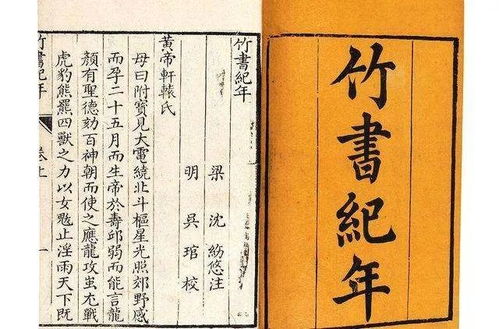 竹書紀年
竹書紀年
梁 沈 注
明 吳琯 校
黃帝軒轅氏
母曰附寶見大電繞北斗樞星光照郊野感
而孕二十五月而生帝於壽邱弱而能言龍
顏有聖德劾百神朝而使之應龍攻蚩尤戰
虎豹熊羆四獸之力以女魃止淫雨天下既
竹書紀年 卷上 一